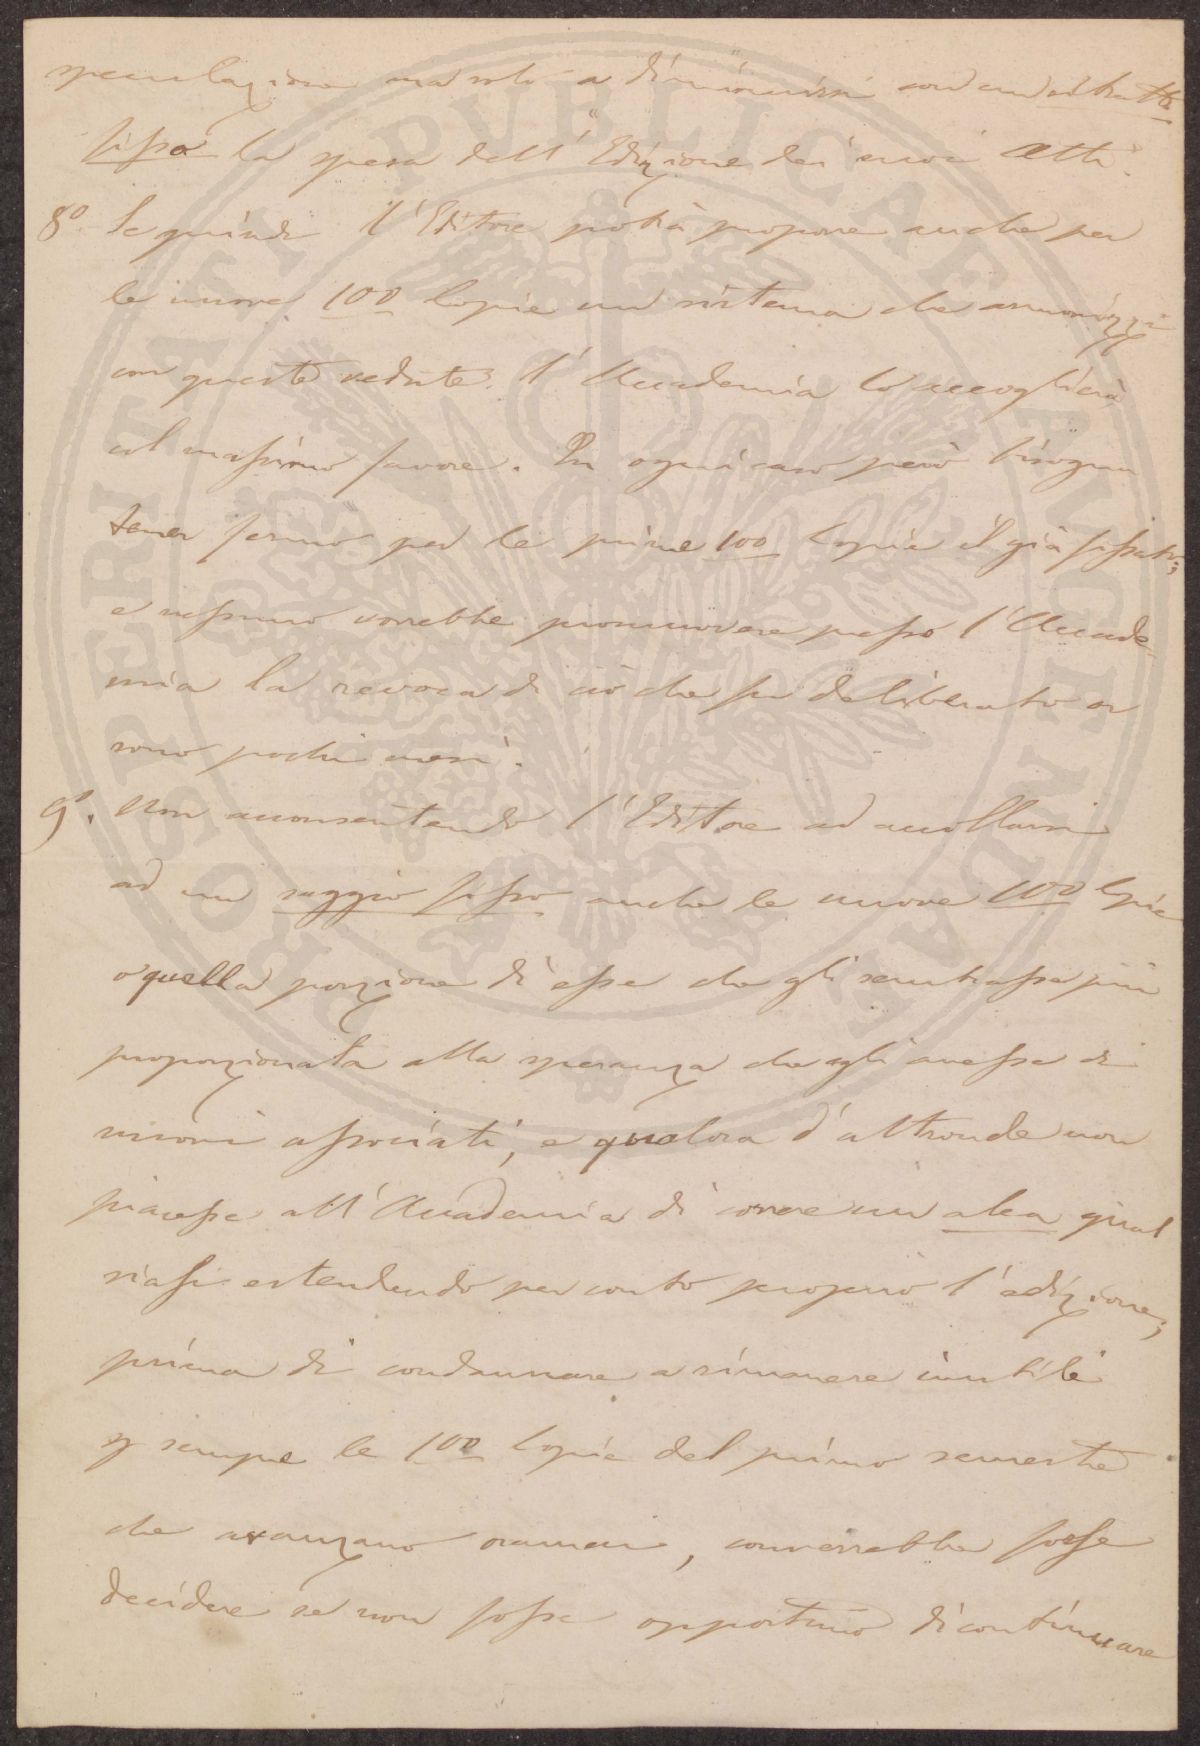 speculazione ma solo a diminuirsi con un estratto
fisso la spesa dell'Edizione dei suoi Atti.
8º. Se quindi l'Editore potrà proporre anche per
le nuove 100 Copie un sistema che armonizzi
con queste vedute, l'Accademia lo accoglierà
col massimo favore. In ogni caso però bisogna
tener fermo per le prime 100 Copie il già fissato;
e nessuno vorrebbe promuovere presso l'Accade-
mia la revoca di ciò che fu deliberato or
sono pochi mesi.
9º. Non acconsentendo l'Editore ad accollarsi
ad un saggio fisso anche le nuove 100 Copie
o quella porzione di esse che gli sembrasse più
proporzionata alla speranza che egli avesse di
nuovi associati, e qualora d'altronde non
piacesse all'Accademia di correre un alea qual
siasi estendendo per conto proprio l'edizione;
prima di condannare a rimanere inutili
p sempre le 100 Copie del primo semestre
che avanzano oramai, converrebbe forse
decidere se non fosse opportuno di continuare
PROSPERITATI PUBLICAE AUGENDAE